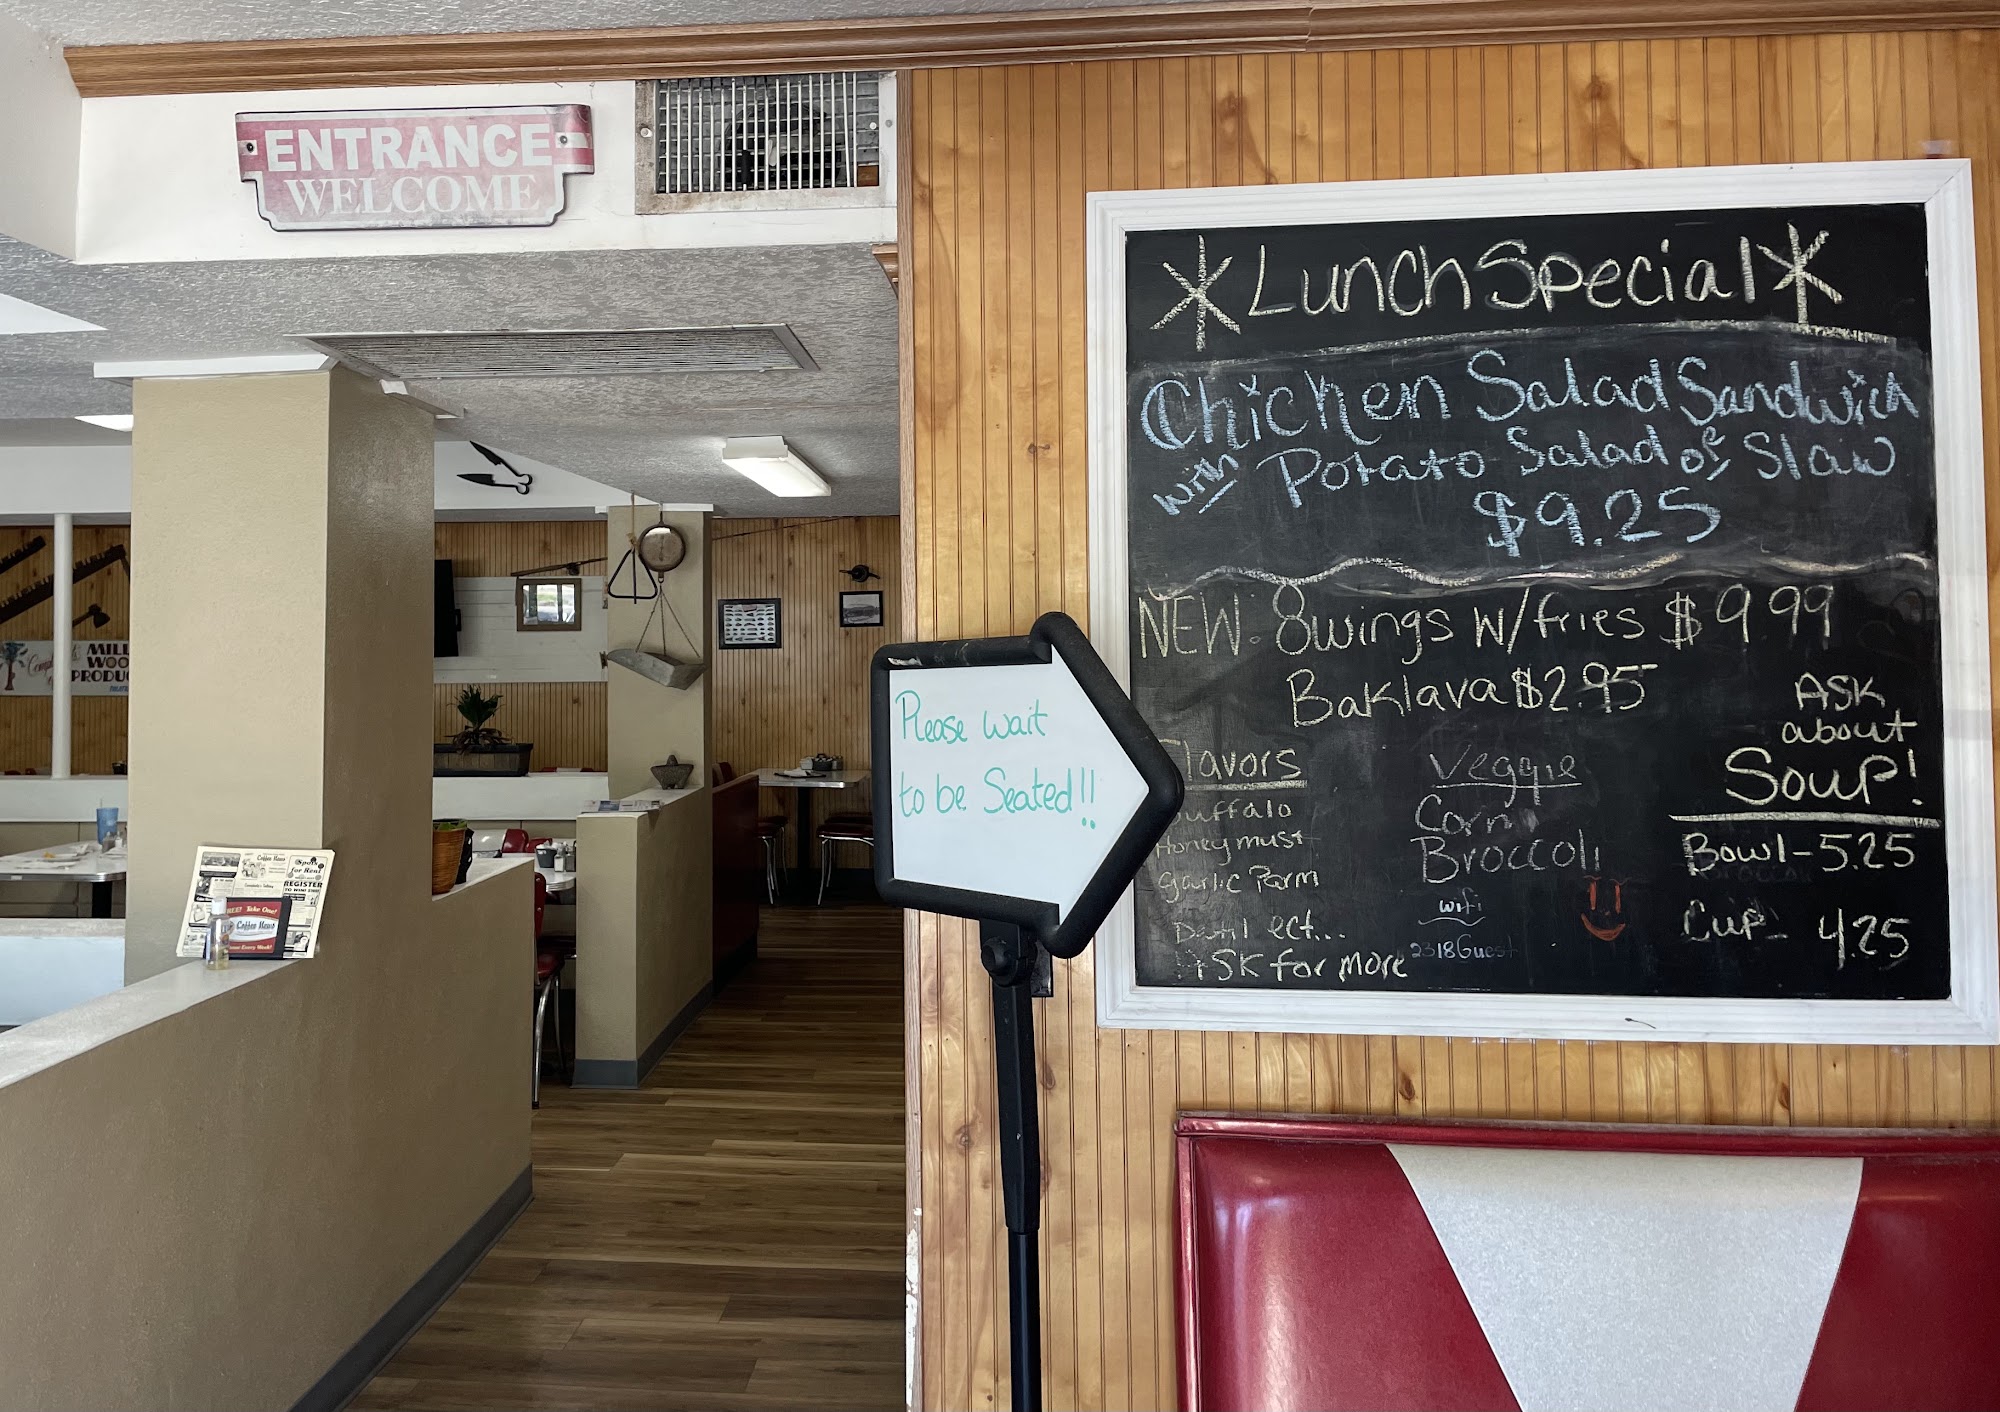 ENTRANCE
WELCOME
MILL
WOO
PRODU
Coffee News
Spots
for Rent
REGISTER
FREE! Take One!
Coffee News
Please wait
to be Seated!!
*Lunch Special*
Chicken Salad Sandwich
with Potato Salad or Slaw
$9.25
NEW: 8wings w/fries $9.99
Baklava $2.95
Flavors
Buffalo
Honey must
garlic Parm
ect...
ASK for more
Veggie
Corn
Broccoli
wifi
2318Guest
ASK
about
Soup!
Bowl-5.25
Cup- 4.25